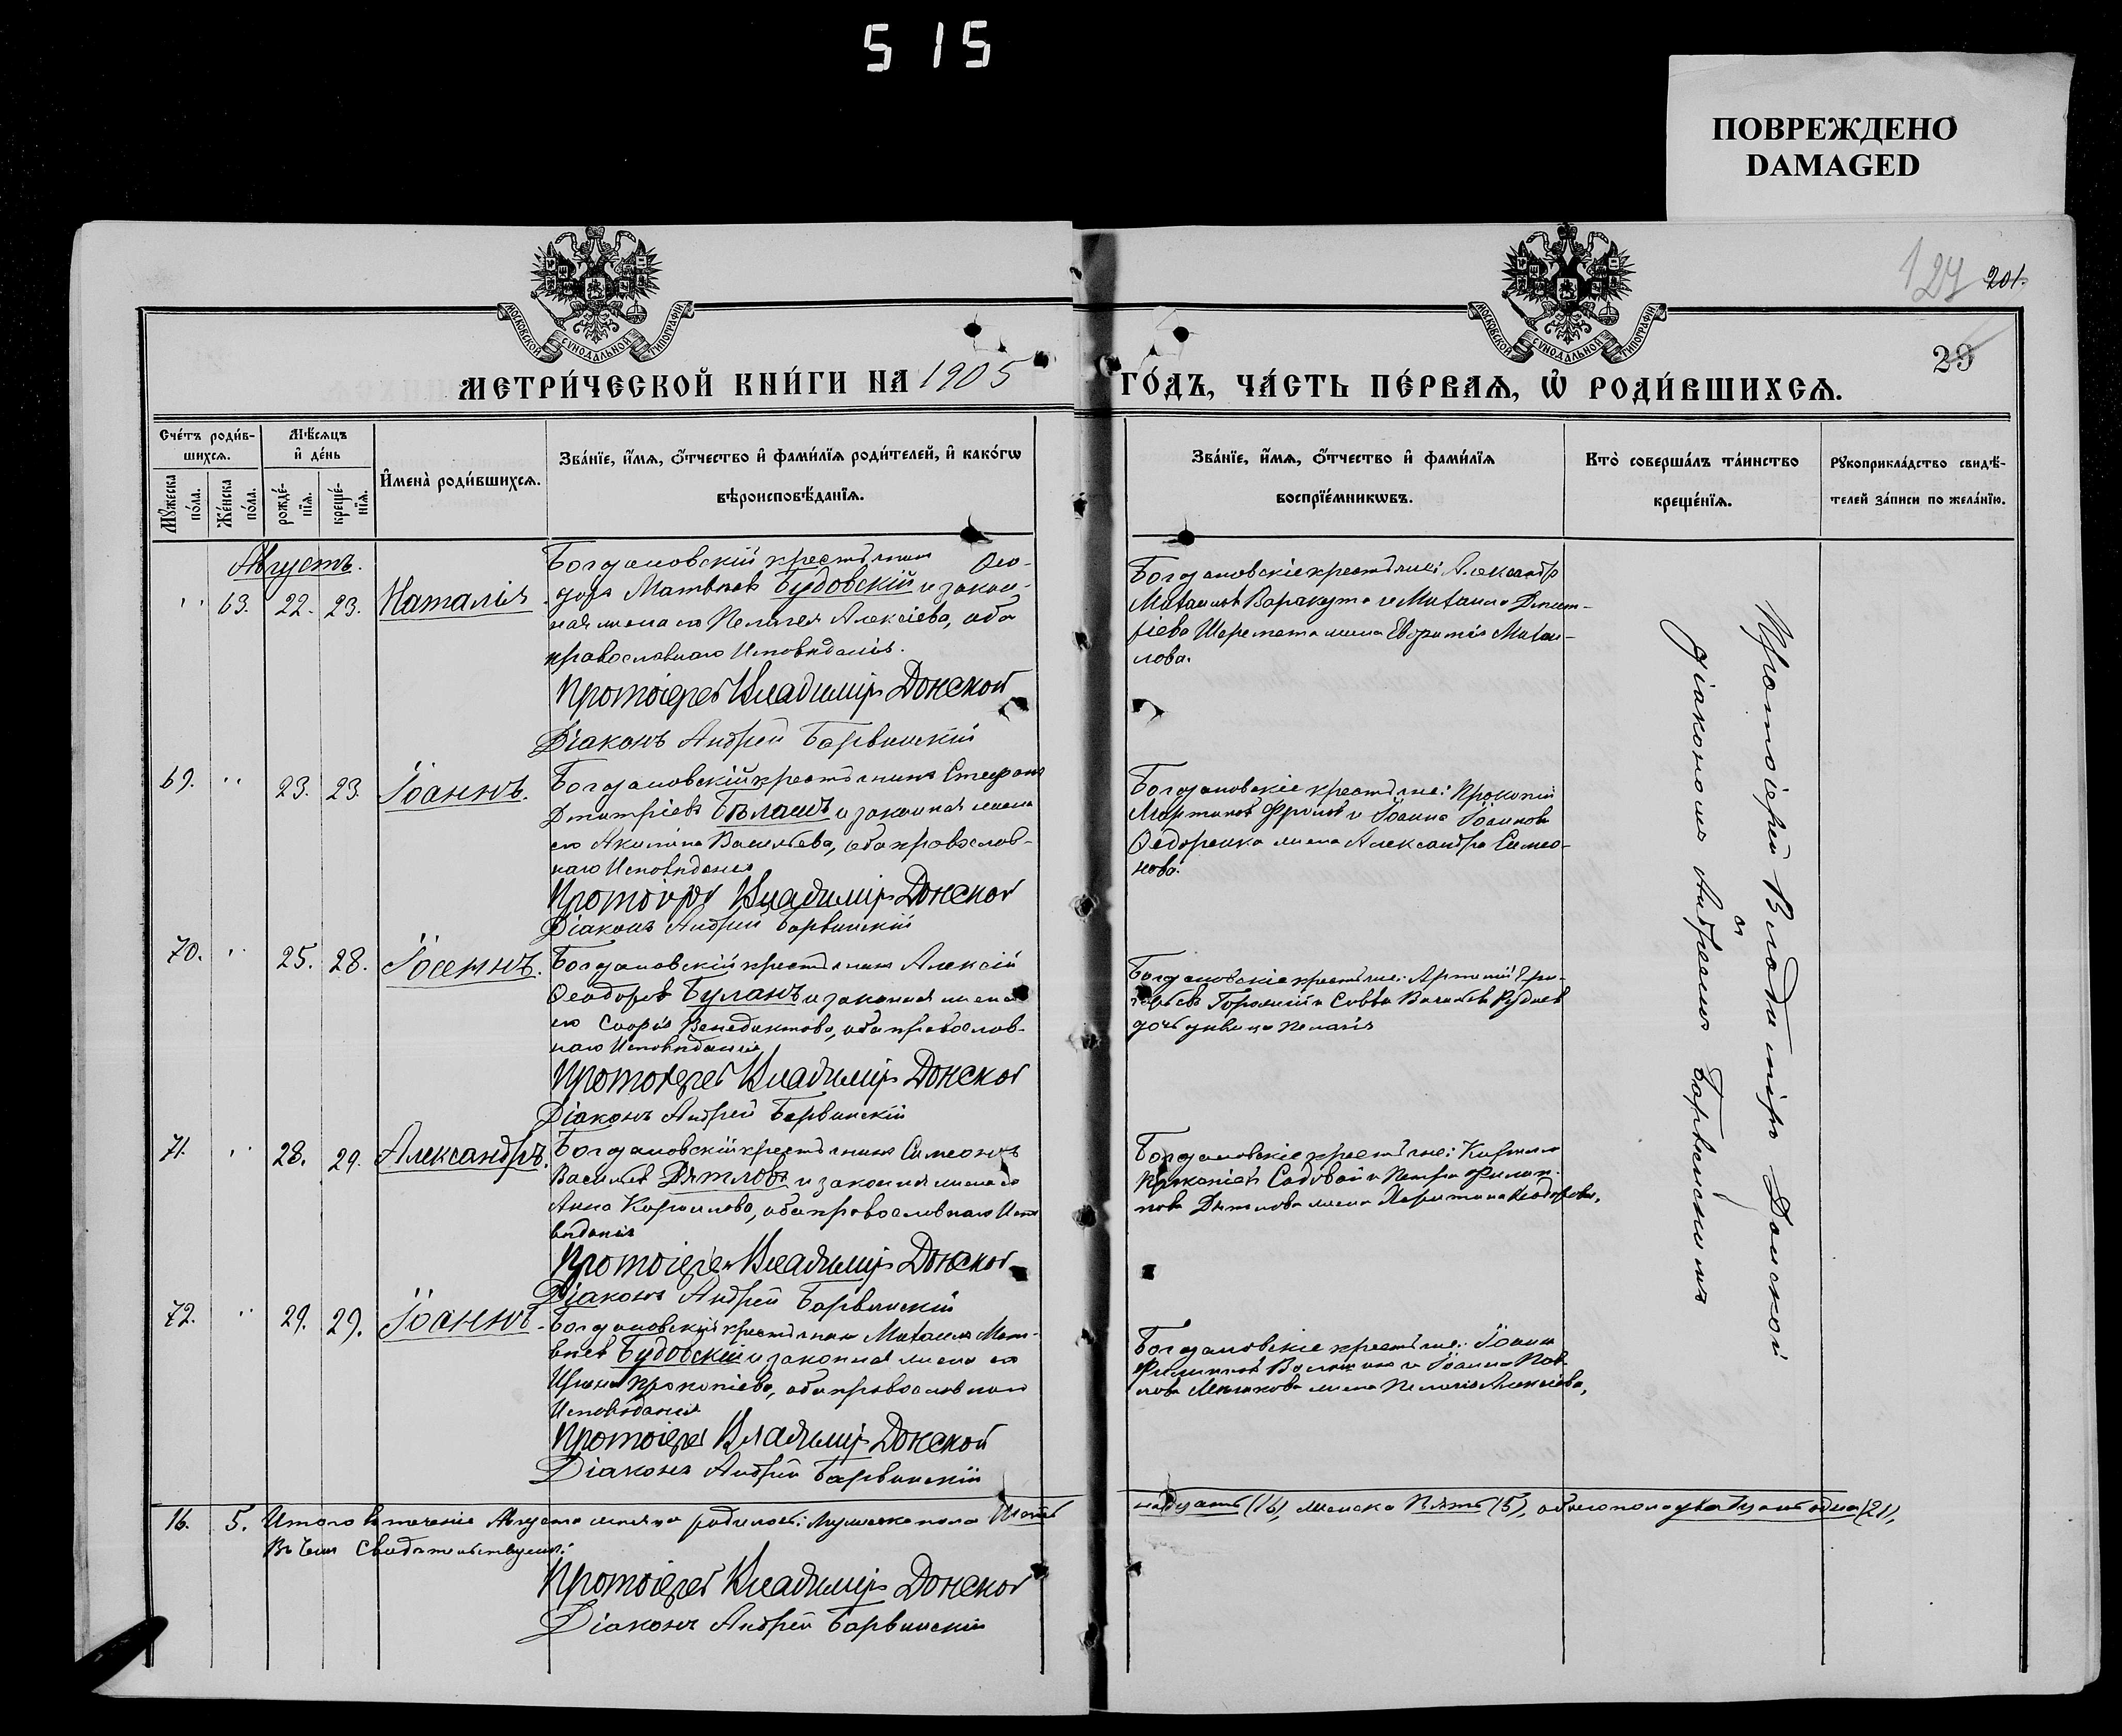 515
ПОВРЕЖДЕНО
DAMAGED
МОСКОВСКОЙ СУНОДАЛЬНОЙ ТИПОГРАФІИ
МОСКОВСКОЙ СУНОДАЛЬНОЙ ТИПОГРАФІИ
127 201.
29
МЕТРИ́ЧЕСКОЙ КНИ́ГИ НА 1905
ГО́ДЪ, ЧА́СТЬ ПЕ́РВАѦ, Ѡ҆ РОДИ́ВШИХСѦ.
Сче́тъ роди́в-
шихсѧ.
Мꙋ́жеска по́ла.
Же́нска по́ла.
Мѣ́сѧцъ
и҆ де́нь
рожде́-
нїѧ.
креще́-
нїѧ.
И҆мена̀ роди́вшихсѧ.
Зва́нїе, и҆́мѧ, ѻ҆́тчество и҆ фами́лїѧ роди́телей, и҆ како́гѡ
вѣроисповѣ́данїѧ.
Зва́нїе, и҆́мѧ, ѻ҆́тчество и҆ фами́лїѧ
воспрїе́мникѡвъ.
Кто̀ соверша́лъ та́инство
креще́нїѧ.
Рꙋкоприкла́дство свидѣ́-
телей за́писи по жела́нїю.
Августъ.
63. 22. 23. Наталія
Богдановскій крестьянинъ Ѳео-
доръ Матвѣевъ Будовскій и закон-
ная жена его Пелагея Алексіева, оба
православнаго Исповѣданія.
Протоіерей Владиміръ Донской
Діаконъ Андрей Барвинскій
Богдановскіе крестьяне: Александръ
Михаиловъ Варакута и Михаила Димит-
ріева Шеремета жена Евфимія Михаи-
лова.
69. 23. 23. Іоаннъ.
Богдановскій крестьянинъ Стефанъ
Димитріевъ Бѣлашъ и законная жена
его Акилина Васильева, оба православ-
наго Исповѣданія
Протоіерей Владиміръ Донской
Діаконъ Андрей Барвинскій
Богдановскіе крестьяне: Прокопій
Мартиновъ Фроловъ и Іоанна Іоаннова
Ѳедоренка жена Александра Симео-
нова.
70. 25. 28. Іосифъ.
Богдановскій крестьянинъ Алексій
Ѳеодоровъ Буланъ и законная жена
его Софія Венедиктова, оба православ-
наго Исповѣданія
Протоіерей Владиміръ Донской
Діаконъ Андрей Барвинскій
Богдановскіе крестьяне: Артемій Гри-
горьевъ и Саввы Васильева
дочь дѣвица Пелагія
71. 28. 29. Александръ.
Богдановскій крестьянинъ Симеонъ
Васильевъ Дятловъ и законная жена его
Анна Корнилова, оба православнаго Испо
вѣданія
Протоіерей Владиміръ Донской
Діаконъ Андрей Барвинскій
Богдановскіе крестьяне:
Садовой и Петра Филип-
пова Дятлова жена Харитина Ѳеодорова.
72. 29. 29. Іоаннъ.
Богдановскій крестьянинъ Михаилъ Мат-
вѣевъ Будовскій и законная жена его
Ирина Прокопіева, оба православнаго
Исповѣданія
Протоіерей Владиміръ Донской
Діаконъ Андрей Барвинскій
Богдановскіе крестьяне: Іоаннъ
Филипповъ и Іоанна Пав-
лова жена Пелагія Алексіева.
Протоіерей Владиміръ Донской
съ
діакономъ Андреемъ Барвинскимъ
16. 5. Итого въ теченіе Августа мѣсяца родилось: Мужеска пола Шест-
надцать (16), женска Пять (5), обоего пола двадцать одинъ (21).
Въ чемъ Свидѣтельствуемъ:
Протоіерей Владиміръ Донской
Діаконъ Андрей Барвинскій